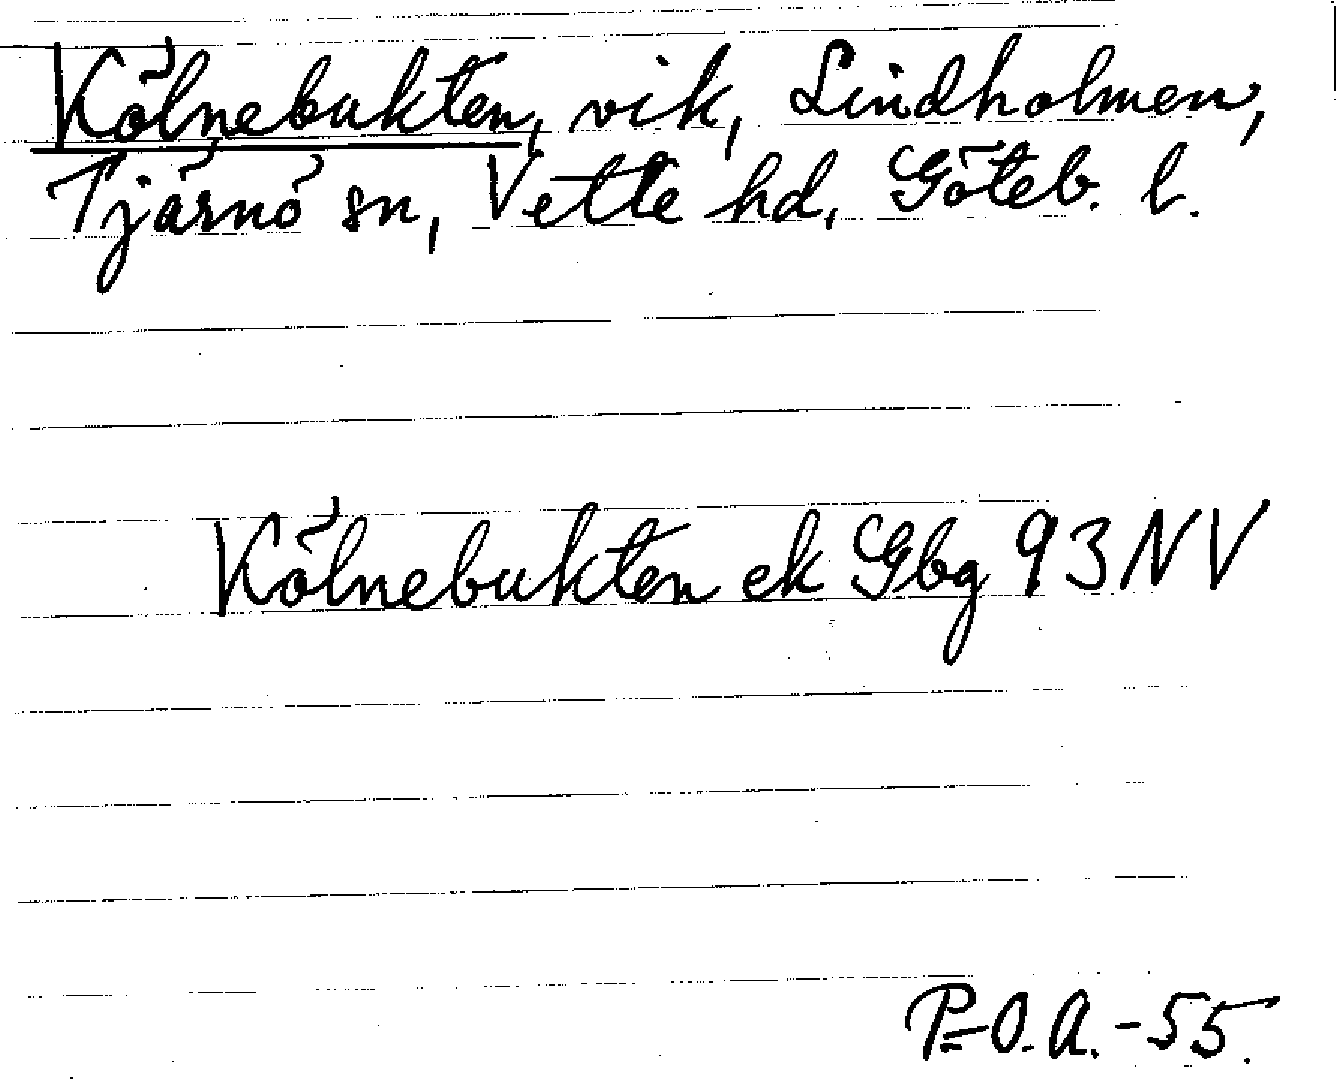 Kölnebukten, vik, Lindholmen,
Tjärnö sn, Vette hd, Göteb. l.
Kölnebukten ek Gbg 93 NV
P-O.A.-55.